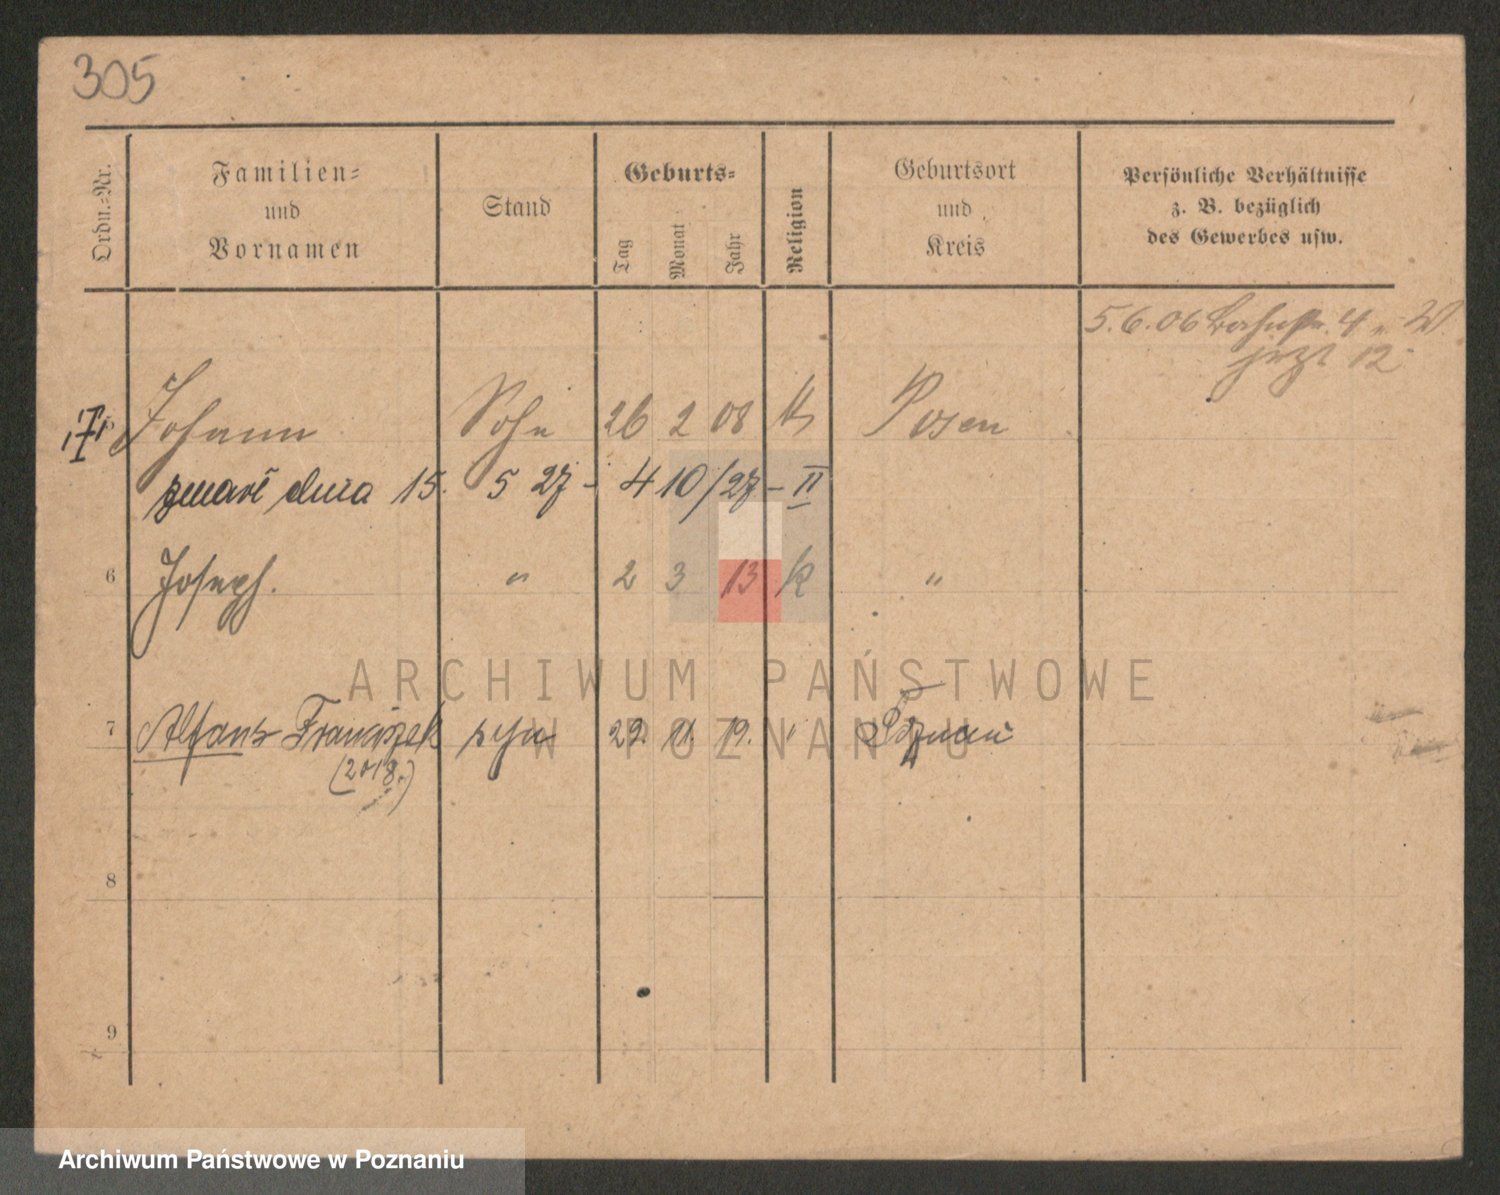 305
Ordn.-Nr.
Familien-
und
Vornamen
Stand
Geburts-
Tag
Monat
Jahr
Religion
Geburtsort
und
Kreis
Persönliche Verhältnisse
z. B. bezüglich
des Gewerbes usw.
5.6.06 Bahnstr. 4 W
jetzt 12
Johann Sohn 26 2 08 k Posen
zmarł dnia 15. 5 27 - 410/27 - II
6 Joseph. " 2 3 13 k "
7 Alfons Franciszek syn 29. 11. 19. " Poznań
(2018.)
8
9
ARCHIWUM PAŃSTWOWE
W POZNANIU
Archiwum Państwowe w Poznaniu